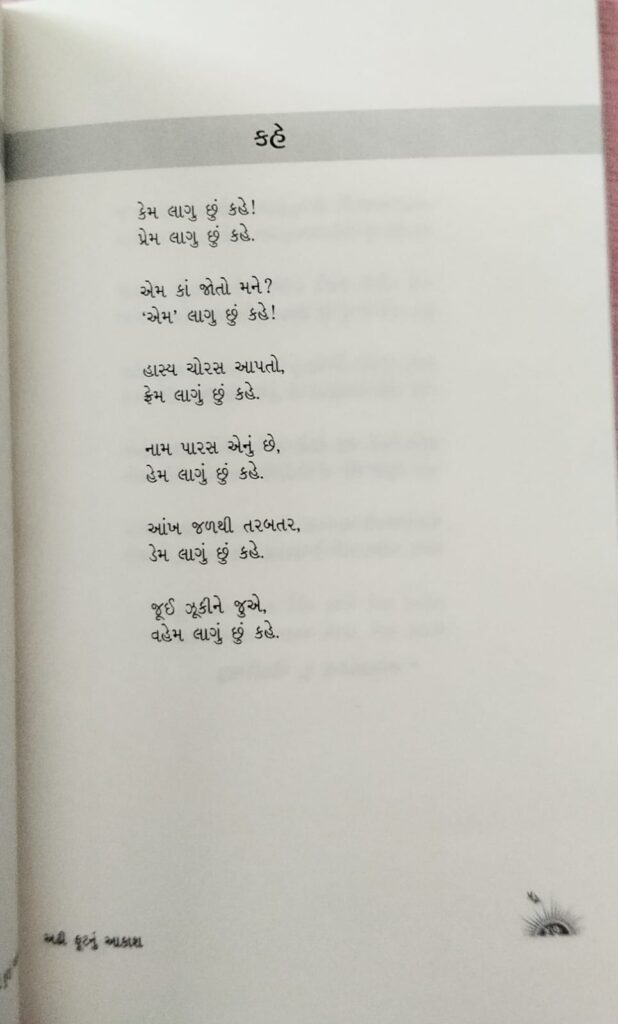 કહે
કેમ લાગુ છું કહે!
પ્રેમ લાગુ છું કહે.
એમ કાં જોતો મને?
‘એમ’ લાગુ છું કહે!
હાસ્ય ચોરસ આપતો,
ફ્રેમ લાગું છું કહે.
નામ પારસ એનું છે,
હેમ લાગું છું કહે.
આંખ જળથી તરબતર,
ડેમ લાગું છું કહે.
જૂઈ ઝૂકીને જુએ,
વહેમ લાગું છું કહે.
અઢી ફૂટનું આકાશ